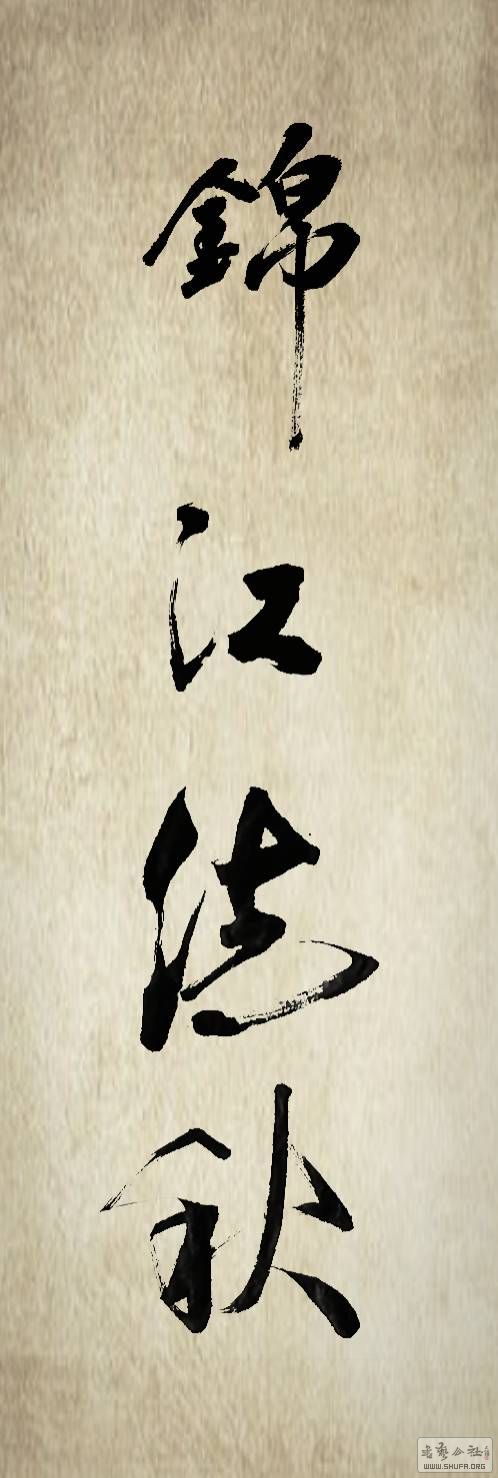 錦江德秋
書藝公社
WWW.SHUFA.ORG